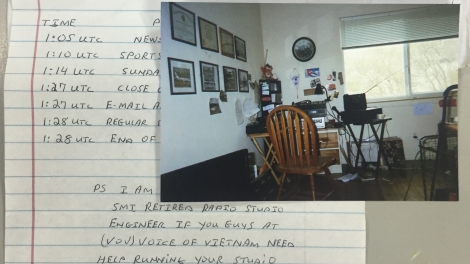 TIME P
1:05 UTC NEWS
1:10 UTC SPORTS
1:14 UTC SUNDA
1:27 UTC CLOSE
1:27 UTC E-MAIL A
1:28 UTC REGULAR
1:28 UTC END OF
PS I AM
SMI RETIRED RADIO STUDIO
ENGINEER IF YOU GUYS AT
(VOV) VOICE OF VIETNAM NEED
HELP RUNNING YOUR STUDIO